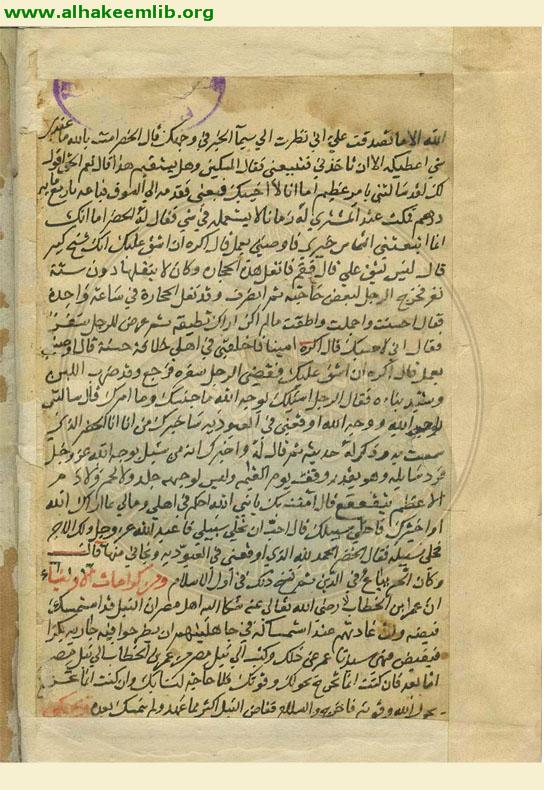 www.alhakeemlib.org
الله الا ما تصدقت علي اني نظرت الي سيمآ الخير في وجهك قال الخضر امنت بالله ما عندي
شي اعطيكه الا ان تاخذني فتبيعني فقال المسكين وهل يستقيم هذا قال نعم الحق اقول
لك لقد سالتني بامر عظيم اما اني لا اخيبك فبعني فقدمه الي السوق فباعه باربع ماية
درهم فمكث عند المشتري له زمانا لا يستعمله في شي فقال له الخضر اما انك
انما ابتعتني التماس خيري فاوصيني بعمل قال اكره ان اشق عليك انك شيخ كبير
قال ليس تشق علي قال فقم فانقل هذه الحجارة وكان لا ينقلها دون ستة
نفر فخرج الرجل لبعض حاجته ثم انصرف وقد نقل الحجارة في ساعة واحدة
فقال احسنت واجملت واطقت مالم اكن اراك تطيقه ثم عرض للرجل سفرًا
فقال اني لاحسبك امينا فاخلفني في اهلي خلافة حسنة قال اوصيني
بعمل قال اكره ان اشق عليك فمضي الرجل سفره ورجع وقد ضرب اللبن
وشيد بناءه فقال الرجل اسئلك لوجه الله ما جنسك وما امرك قال سالتني
بوجه الله ووجه الله اوقعني في العبوديه ساخبرك من انا انا الخضر الذي
سمعت به وذكر له حديثه ثم قال له واخبرك انه من سئل بوجه الله عز وجل
فرد سايله وهو يقدر وقف يوم القيمه وليس لوجهه جلد ولا لحم ولا دم
الا عظم يتقعقع قال امنت بك بابي انت احكم في اهلي ومالي بما اراك الله
او اخيرك فاخلي سبيلك قال احب ان تخلي سبيلي فاعبد الله عز وجل
فخلي سبيله فقال الخضر الحمد لله الذي اوقعني في العبوديه ونجاني منها قال
وكان الحر يباع في الدين ثم نسخ ذلك في اول الاسلام ومن كرامات الاولياء
ان عمر ابن الخطاب رضي الله تعالي عنه شكا اليه اهل مصر ان النيل قد استمسك
فيضه وان عادتهم عند استمساكه في جاهليتهم ان يطرحوا فيه جارية بكرا
فيفيض فنهي سيدنا عمر عن ذلك وكتب الي نيل مصر من عمر بن الخطاب الي نيل مصر
اما بعد فان كنت انما تجري بحولك وقوتك فلا حاجة لنا بك وان كنت انما تجري
بحول الله وقوته فاجر والسلام ففاض النيل اكثر مما عهد ولم استمسك بعده